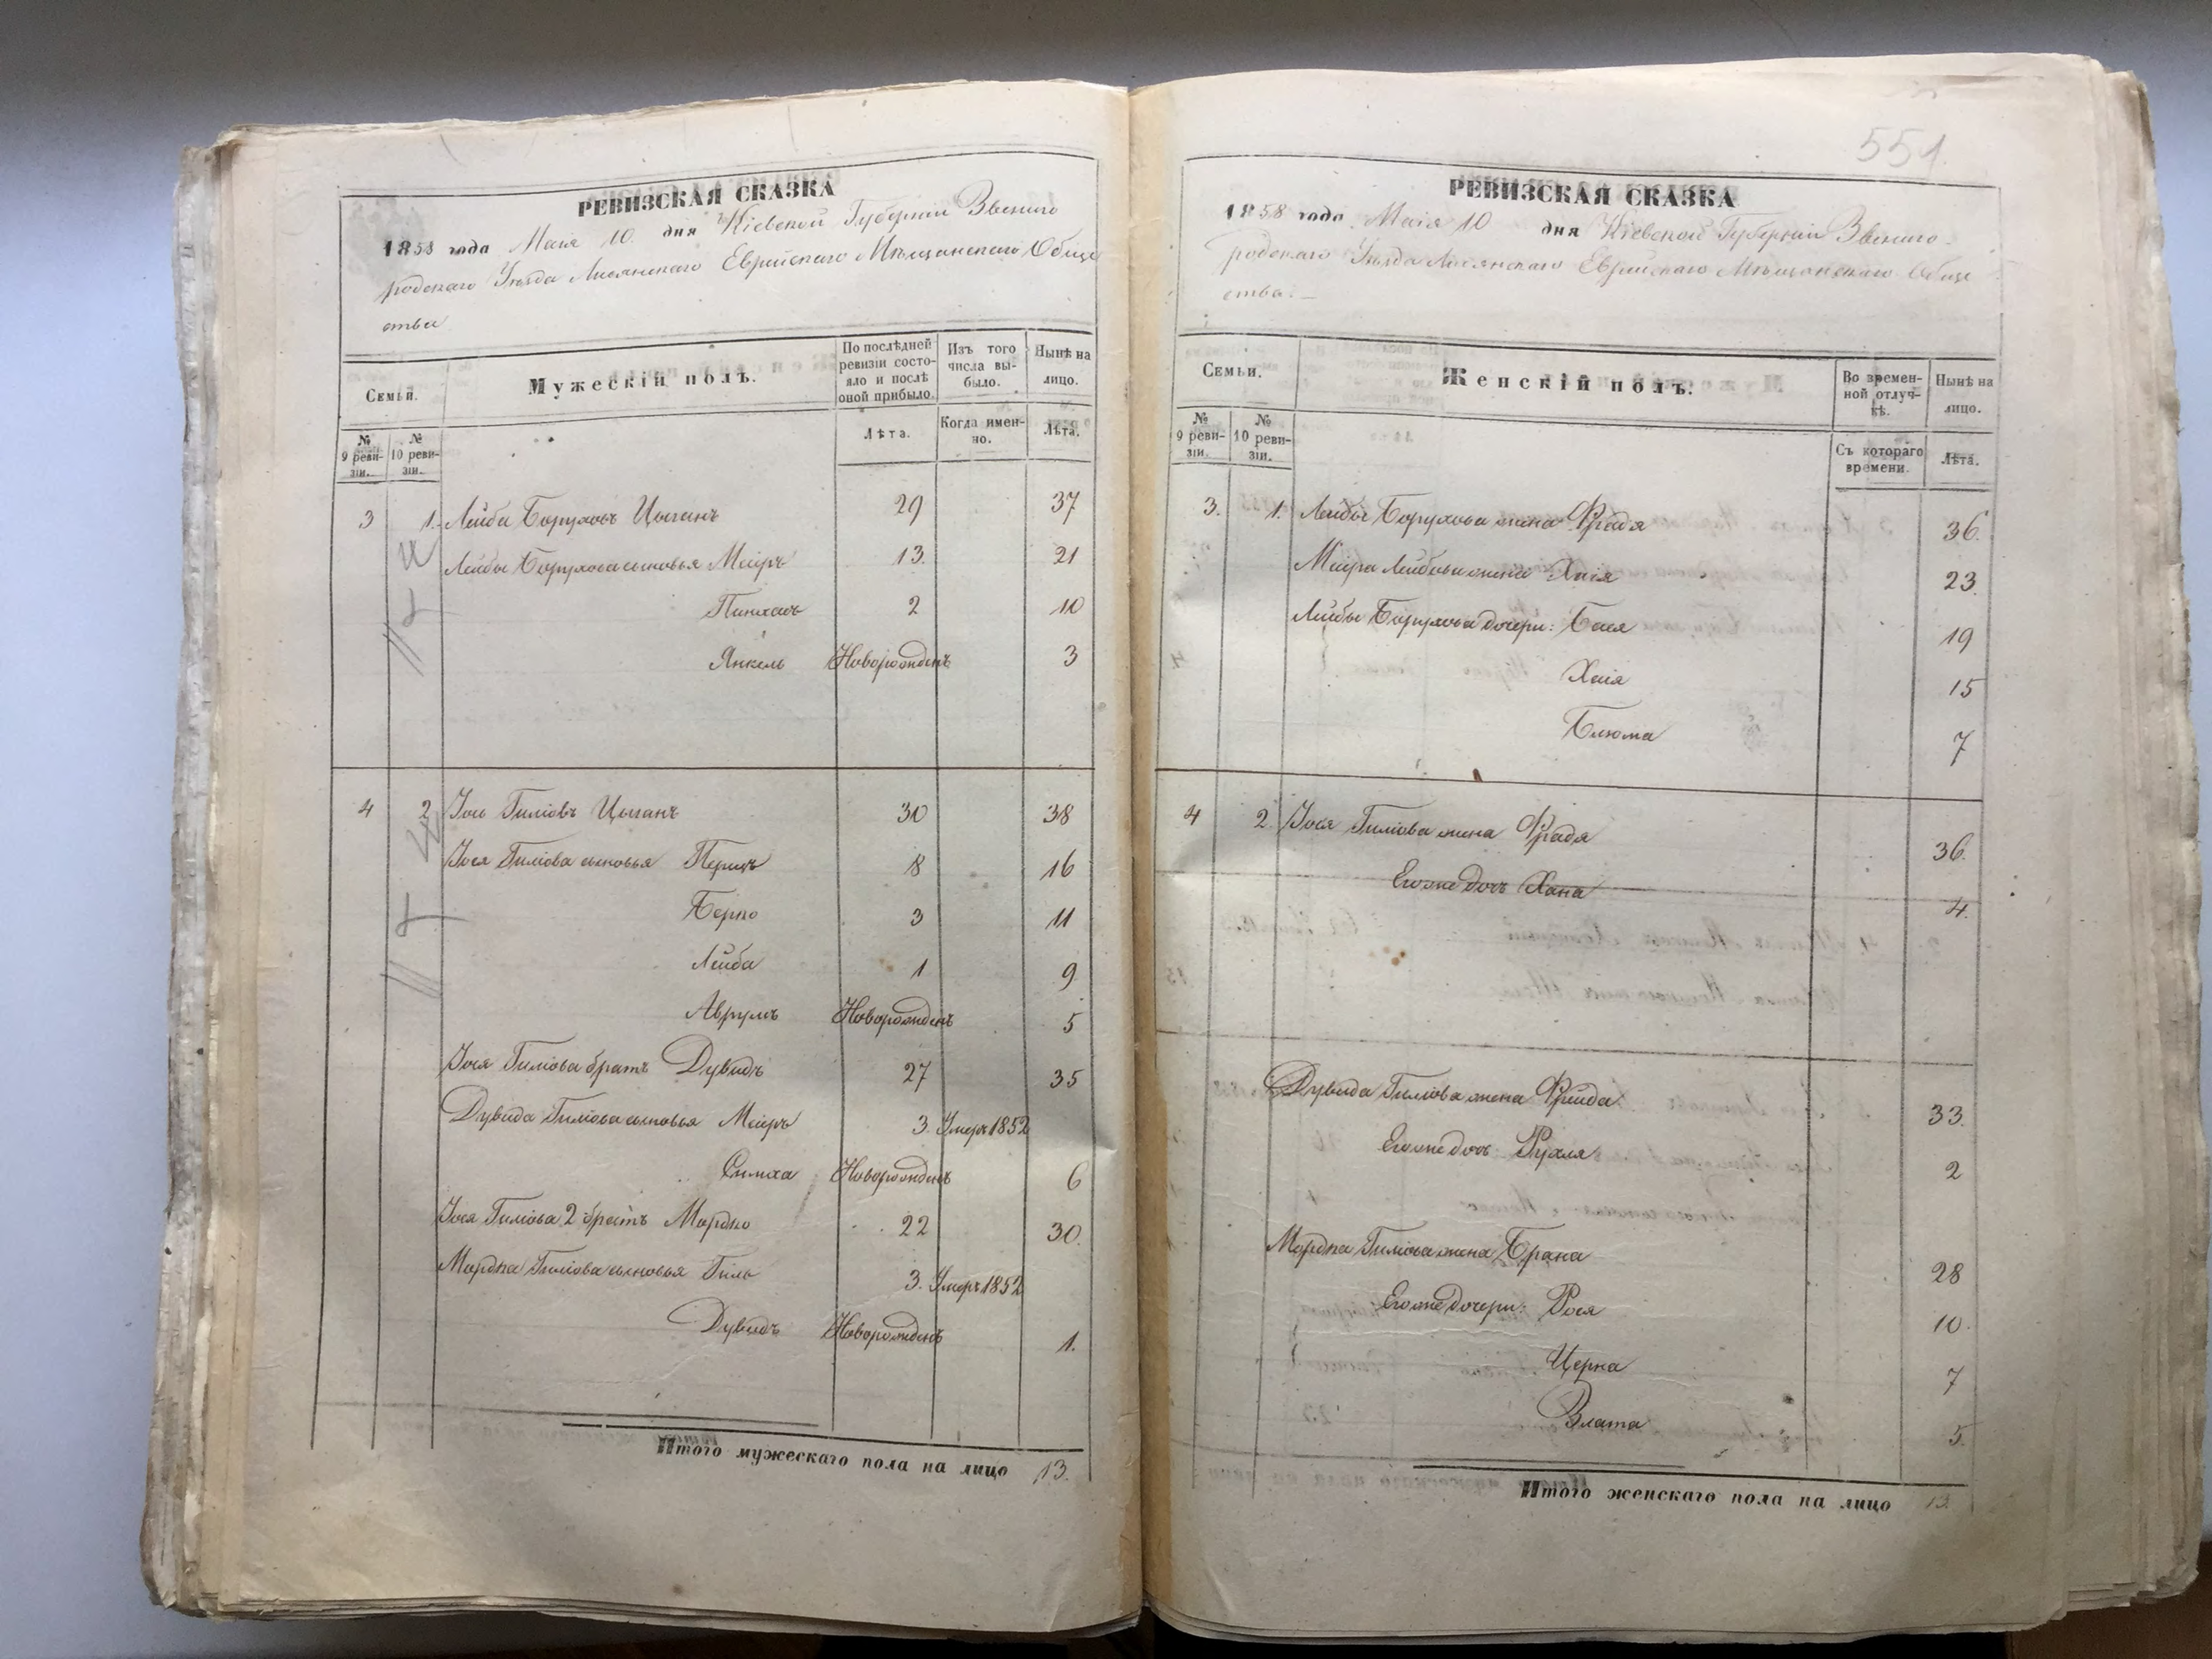 РЕВИЗСКАЯ СКАЗКА
1858 года Маія 10 дня Кіевской Губерніи Звениго
родскаго Уѣзда Лисянскаго Еврейскаго Мѣщанскаго Обще
ства
Семьи. Мужескій полъ. По послѣдней ревизіи состояло и послѣ оной прибыло. Изъ того числа выбыло. Нынѣ на лицо.
№ 9 ревизіи. № 10 ревизіи. Лѣта. Когда именно. Лѣта.
3 1. Лейба Боруховъ Цыганъ 29 37
Лейбы Борухова сыновья Меиръ 13. 21
Пинхасъ 2 10
Янкель Новорожденъ 3
4 2 Іось Гиліовъ Цыганъ 30 38
Іося Гиліова сыновья Перецъ 8 16
Берко 3 11
Лейба 1 9
Аврумъ Новорожденъ 5
Іося Гиліова братъ Дувидъ 27 35
Дувида Гиліова сыновья Меиръ 3. Умеръ 1852
Симха Новорожденъ 6
Іося Гиліова 2 братъ Мордко 22 30.
Мордка Гиліова сыновья Гиль 3. Умеръ 1852
Дувидъ Новорожденъ 1.
Итого мужескаго пола на лицо 13.
551
РЕВИЗСКАЯ СКАЗКА
1858 года Маія 10 дня Кіевской Губерніи Звениго-
родскаго Уѣзда Лисянскаго Еврейскаго Мѣщанскаго Обще
ства. —
Семьи. Женскій полъ. Во временной отлучкѣ. Нынѣ на лицо.
№ 9 ревизіи. № 10 ревизіи. Съ котораго времени. Лѣта.
3. 1. Лейбы Борухова жена Фрадя 36.
Меира Лейбова жена Хаія 23.
Лейбы Борухова дочери: Бася 19
Хаія 15
Блюма 7
4 2. Іося Гиліова жена Фрадя 36.
Его же дочь Хана 4.
Дувида Гиліова жена Фрейда 33.
Его же дочь Рухля 2
Мордка Гиліова жена Брана 28
Его же дочери: Рося 10.
Церна 7
Злата 5.
Итого женскаго пола на лицо 13.